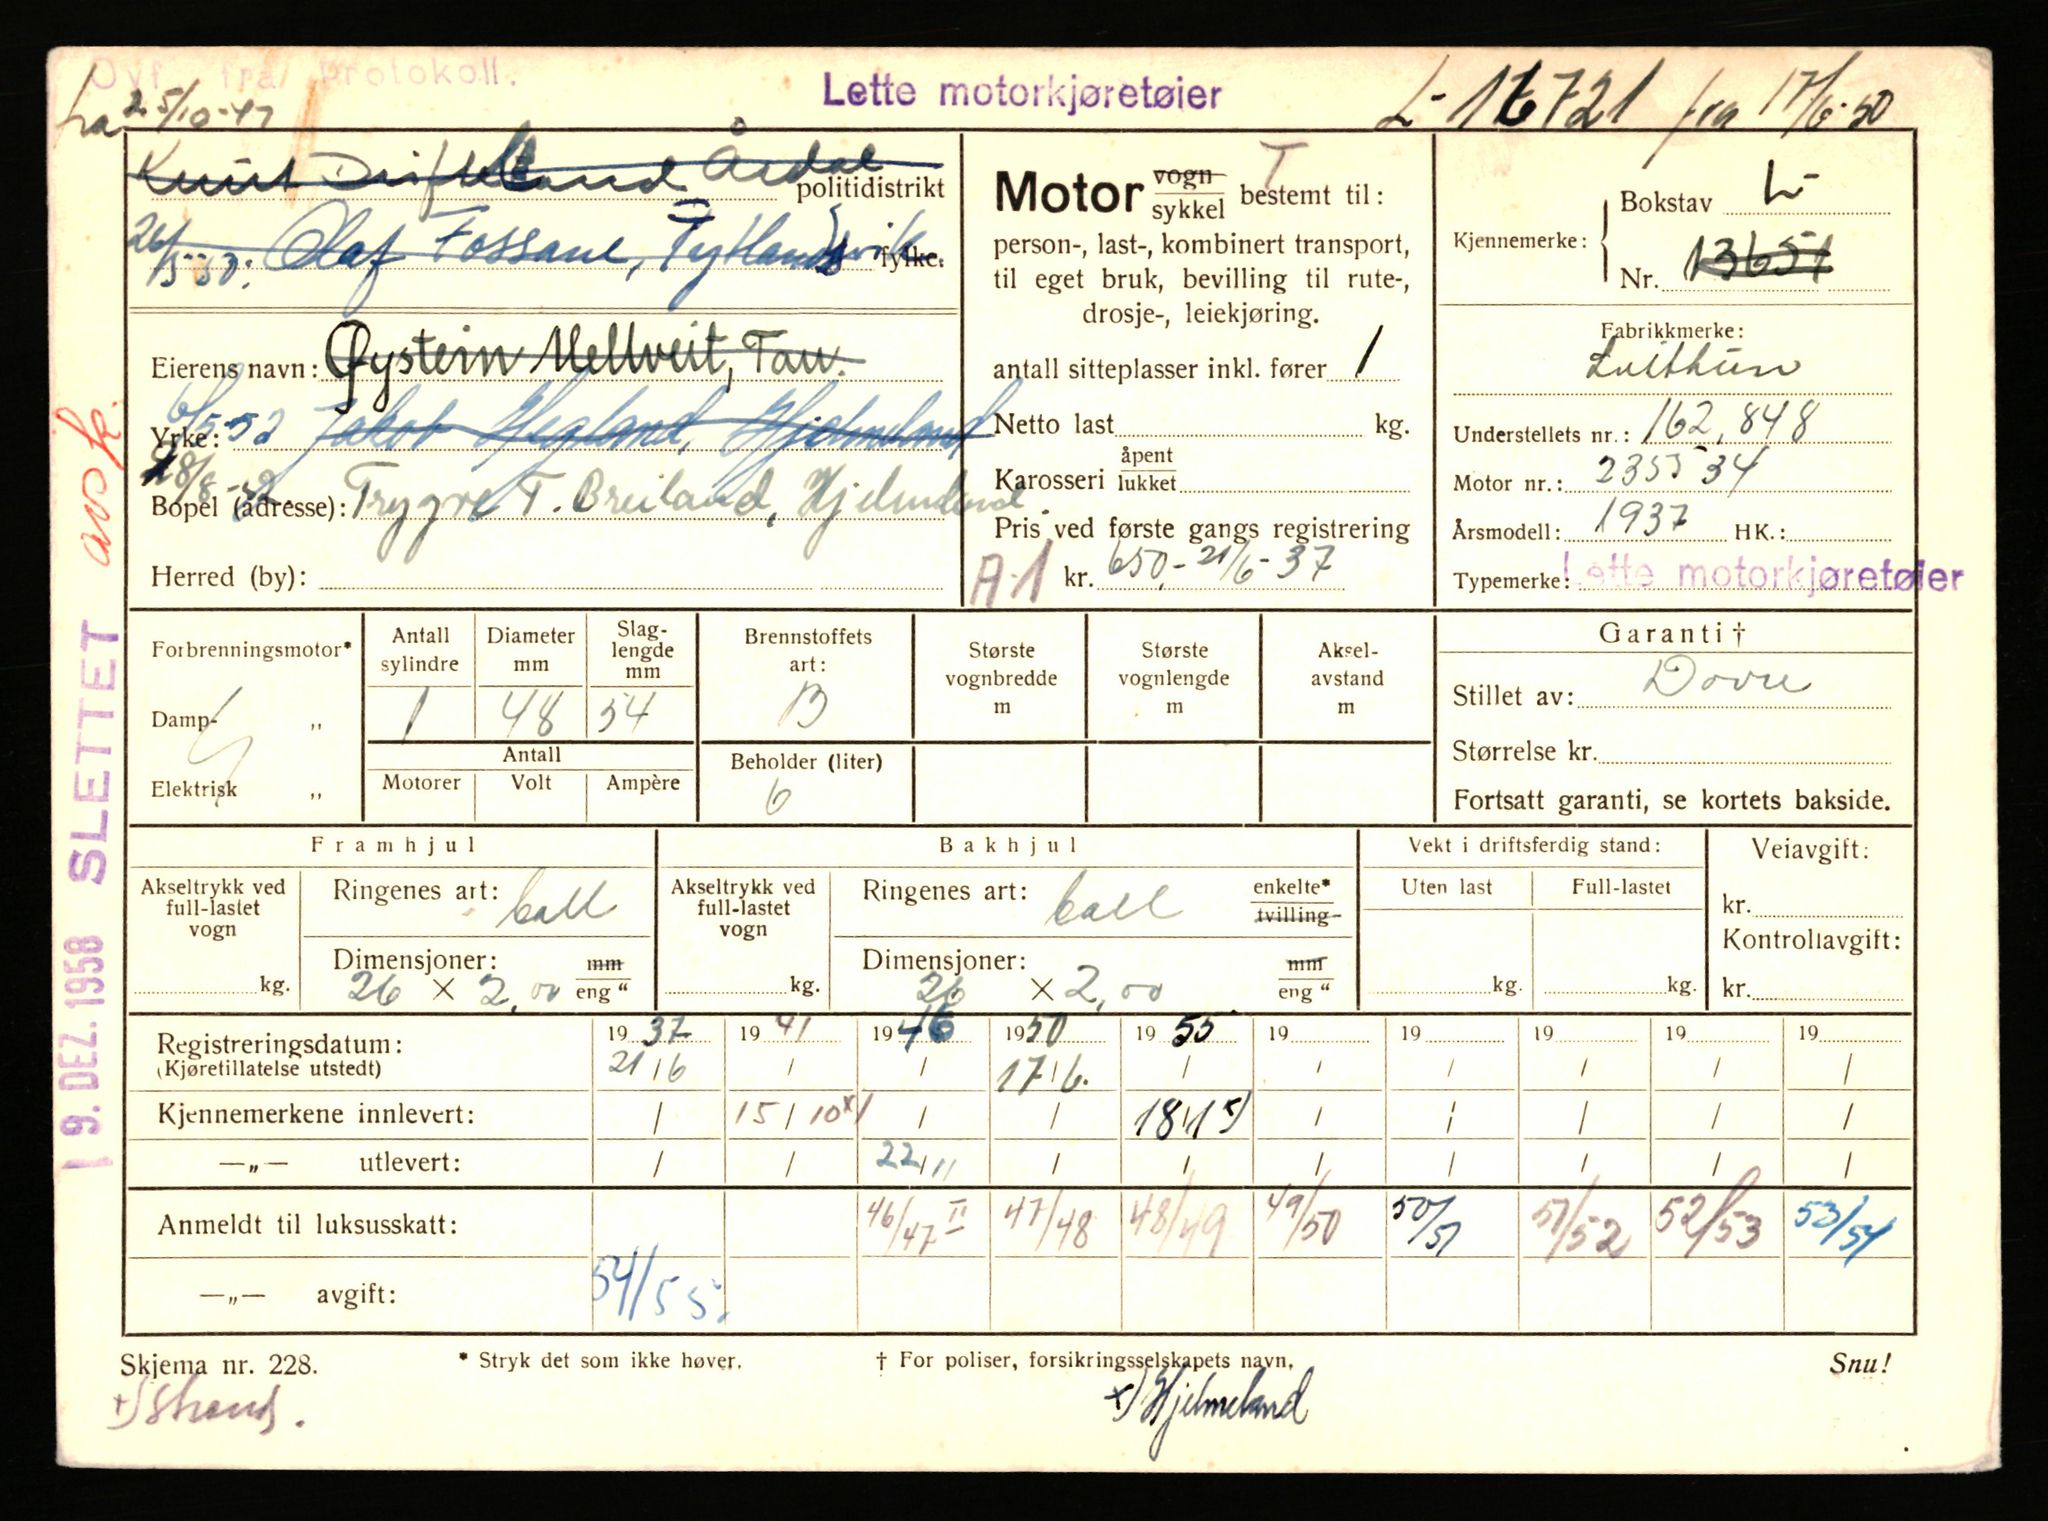 Ovf. fra protokoll.
Lette motorkjøretøier
L-16721 fra 17/6-50
fra 25/10-47
Knut Årdal
politidistrikt
26/5-50. Olaf Fossane, Fytlandsvik
fylke.
Eierens navn: Øystein Mellveit, Tau.
Yrke: 6/5-52 Jakob Hegland, Hjelmeland
Bopel (adresse): Trygve T. Breiland, Hjelmeland
Herred (by):
Motor vogn sykkel bestemt til: T
person-, last-, kombinert transport,
til eget bruk, bevilling til rute-,
drosje-, leiekjøring.
antall sitteplasser inkl. fører 1
Netto last kg.
Karosseri åpent lukket
Pris ved første gangs registrering
A-1 kr. 650,- 21/6-37
Kjennemerke: Bokstav L-
Nr. 13651
Fabrikkmerke:
Understellets nr.: 162,848
Motor nr.: 235534
Årsmodell: 1937 HK.:
Typemerke: Lette motorkjøretøier
Forbrenningsmotor*
Damp- „
Elektrisk „
Antall sylindre 1
Diameter mm 48
Slaglengde mm 54
Antall
Motorer Volt Ampère
Brennstoffets art: B
Beholder (liter) 6
Største vognbredde m
Største vognlengde m
Akselavstand m
Garanti †
Stillet av: Dovre
Størrelse kr.
Fortsatt garanti, se kortets bakside.
Framhjul
Akseltrykk ved full-lastet vogn
kg.
Ringenes art: ball
Dimensjoner: mm
26 × 2,00 eng "
Bakhjul
Akseltrykk ved full-lastet vogn
kg.
Ringenes art: ball enkelte* tvilling
Dimensjoner: mm
26 × 2,00 eng "
Vekt i driftsferdig stand:
Uten last Full-lastet
kg. kg.
Veiavgift:
kr.
Kontrollavgift:
kr.
Registreringsdatum: 1937 1941 1946 1950 1955 19 19 19 19 19
(Kjøretillatelse utstedt) 21/6 / / 17/6. / / / / / /
Kjennemerkene innlevert: / 15/10 x) / / 18/1 / / / / /
—„— utlevert: / / 22/11 / / / / / / /
Anmeldt til luksusskatt: 46/47 II 47/48 48/49 49/50 50/51 51/52 52/53 53/54
—„— avgift: 54/55.
Skjema nr. 228. * Stryk det som ikke høver. † For poliser, forsikringsselskapets navn. Snu!
+) Strand. x) Hjelmeland
19. DEZ. 1958 SLETTET avsk.